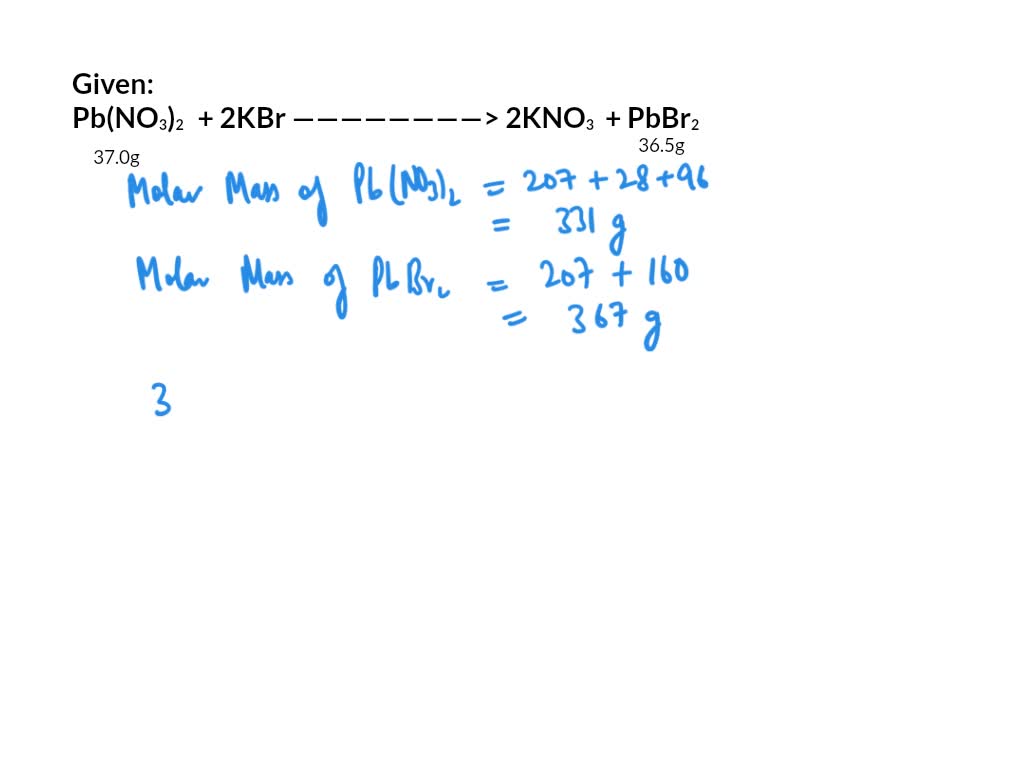 Given:
Pb(NO₃)₂ + 2KBr ————————> 2KNO₃ + PbBr₂
37.0g 36.5g
Molar Mass of Pb(NO₃)₂ = 207 + 28 + 96
= 331 g
Molar Mass of PbBr₂ = 207 + 160
= 367 g
3